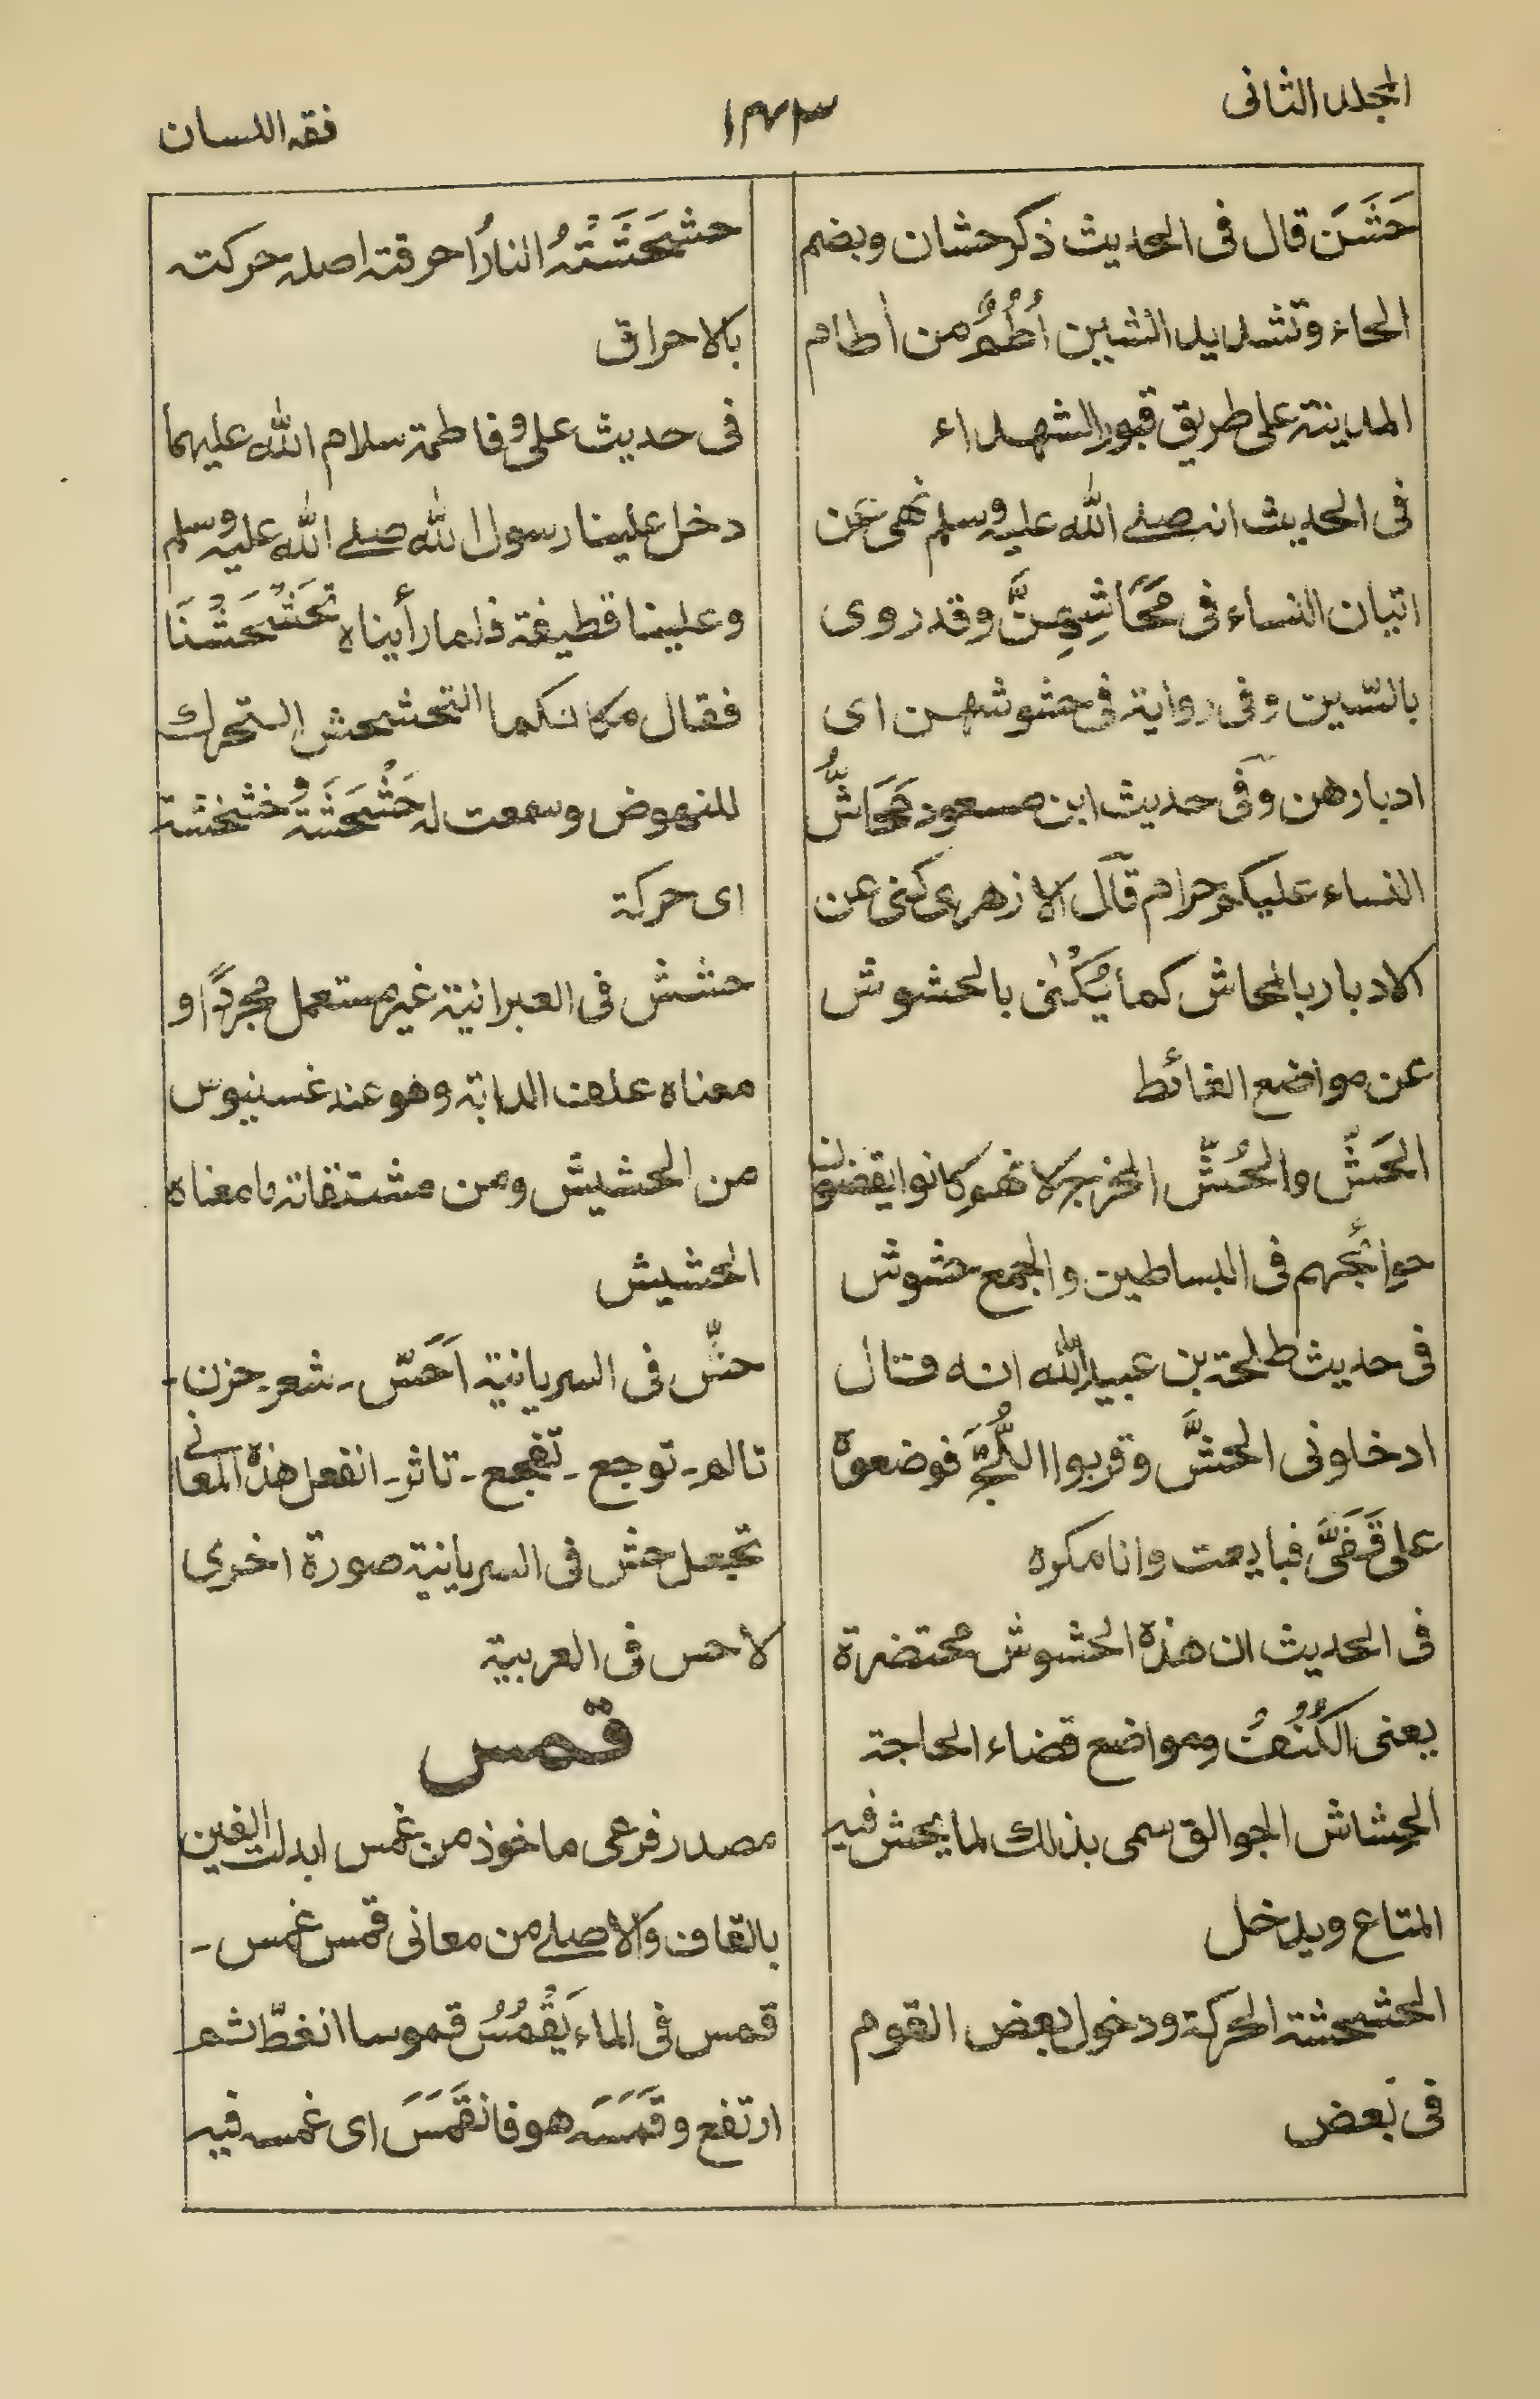 المجلد الثانى
١٤٣
فقه اللسان
حَشَنَ قال فى الحديث ذكر حشان وبضم
الحاء وتشديد الشين أُطُمٌ من أطام
المدينة على طريق قبور الشهداء
فى الحديث انه صلے الله عليه وسلم نهى عن
اتيان النساء فى مَحَاشِهِنَّ وقد روى
بالسّين وفى رواية فى حشوشهن اى
ادبارهن وفى حديث ابن مسعود مَحَاشُّ
النساء عليكم حرام قال الازهرى كنى عن
الادبار بالمحاش كما يُكْنٰى بالحشوش
عن مواضع الغائط
الحَشّ والحُشّ المخرج لانهم كانوا يقضون
حوائجهم فى البساطين والجمع حشوش
فى حديث طلحة بن عبيد الله انه قال
ادخلونى الحشَّ وقربوا اللُّجَّ فوضعوه
على قَفَىَّ فبايعت وانا مكره
فى الحديث ان هذه الحشوش محتضرة
يعنى الكُنُفَ ومواضع قضاء الحاجة
الحِشاش الجوالق سمى بذلك لما يحش فيه
المتاع ويدخل
الحشحشة الحركة ودخول بعض القوم
فى بَعض
حشحَشَتْهُ النارُ احرقته اصله حركته
بالاحراق
فى حديث على وفاطمة سلام الله عليهما
دخل علينا رسول الله صلے الله عليه وسلم
وعلينا قطيفة فلما رأيناه تَحَشْحَشْنَا
فقال مكانكما التحشحش التحرك
للنهوض وسمعت له حَشْحَشَةً وخشخشة
اى حركة
حشش فى العبرانية غير مستعمل مجردًا و
معناه علف الدابة وهو عند غسنيوس
من الحشيش ومن مشتقاته ما معناه
الحشيش
حشّ فى السريانية اَحَسّ - شعر - حزن -
تالم - توجع - تفجع - تاثر - انفعل هذه المعانے
تجعل حش فى السريانية صورة اخرى
لاحس فى العربية
قمس
مصدر فرعى ماخوذ من غمس ابدلت الغين
بالقاف والاصلے من معانى قمس غمس -
قمس فى الماء يَقْمُسُ قموسا انغطّ ثم
ارتفع وقَمَسَه هو فانقَمَسَ اى غمسه فيه